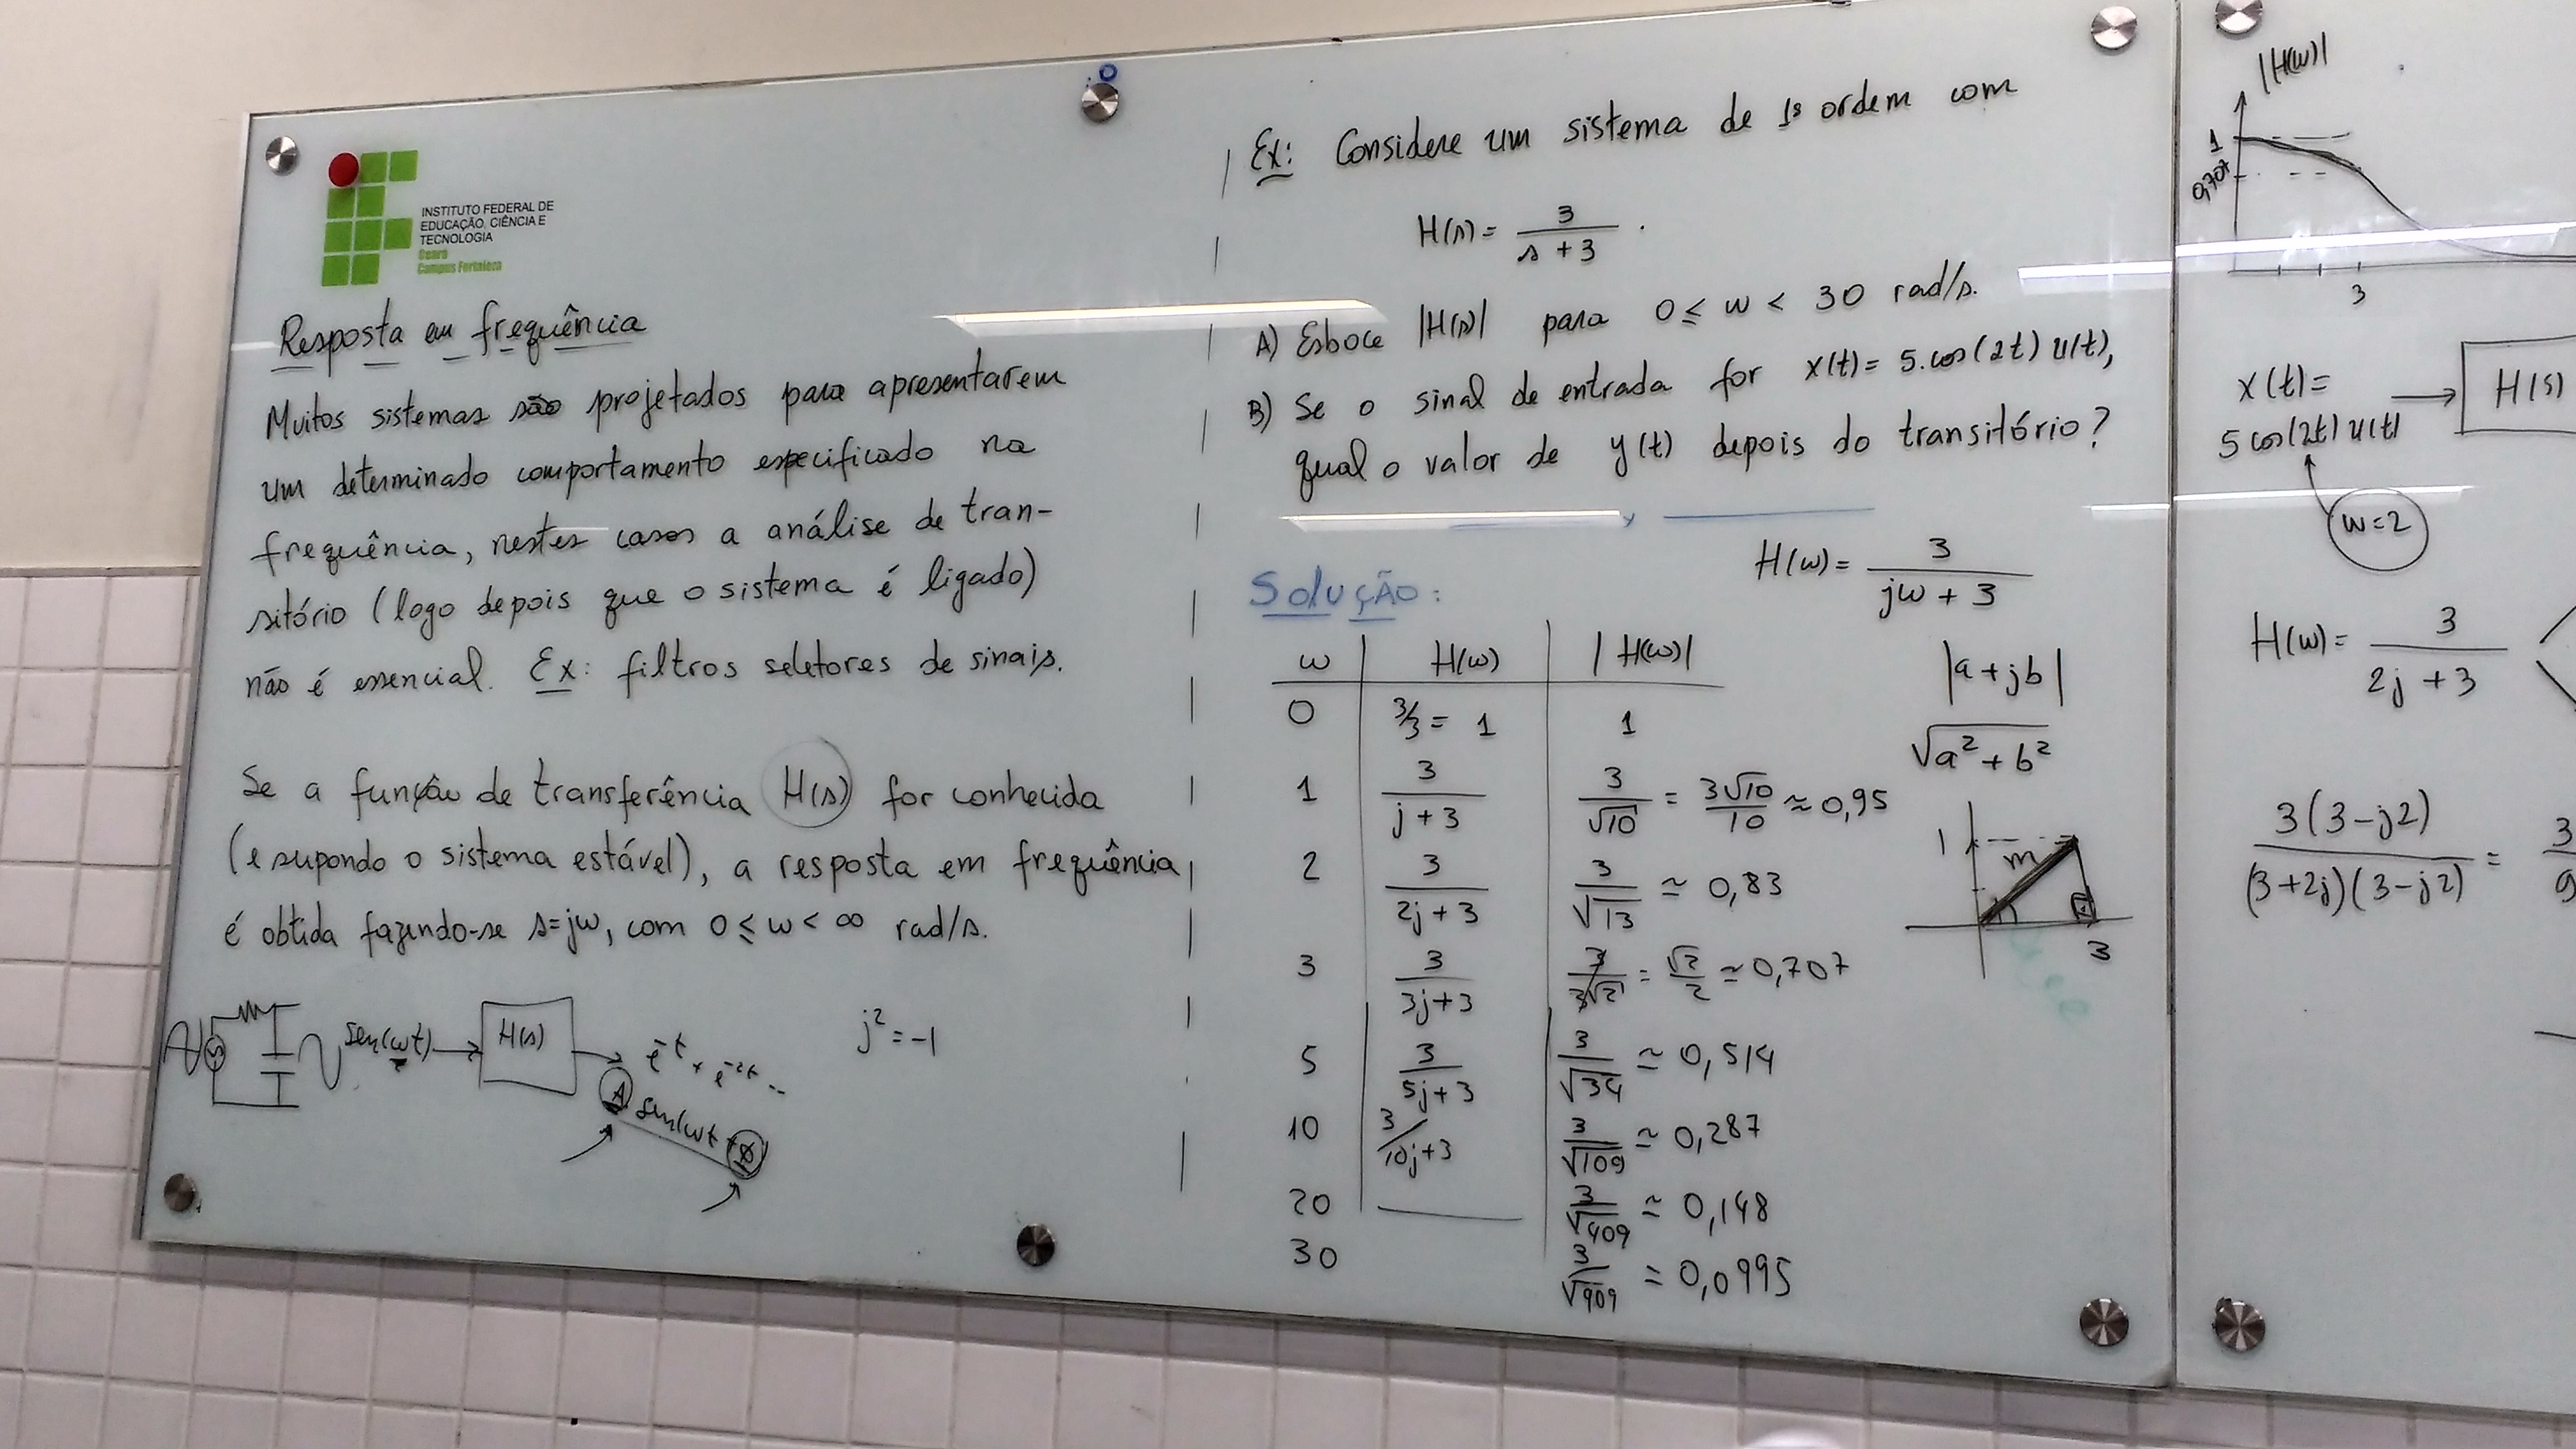 INSTITUTO FEDERAL DE
EDUCAÇÃO, CIÊNCIA E
TECNOLOGIA
Ceará
Campus Fortaleza
Resposta em frequência
Muitos sistemas são projetados para apresentarem
um determinado comportamento especificado na
frequência, nestes casos a análise de tran-
sitório (logo depois que o sistema é ligado)
não é essencial. Ex: filtros seletores de sinais.
Se a função de transferência H(s) for conhecida
(e supondo o sistema estável), a resposta em frequência
é obtida fazendo-se s=jw, com 0 ≤ w < ∞ rad/s.
sen(wt) → H(s) → e^-t + e^-2t ...
A sen(wt + Ø)
j² = -1
Ex: Considere um sistema de 1ª ordem com
H(s) = 3/(s + 3).
A) Esboce |H(s)| para 0 ≤ w < 30 rad/s.
B) Se o sinal de entrada for x(t) = 5.cos(2t) u(t),
qual o valor de y(t) depois do transitório?
Solução:
H(w) = 3/(jw + 3)
w | H(w) | |H(w)|
0 | 3/3 = 1 | 1
1 | 3/(j+3) | 3/√10 = 3√10/10 ≈ 0,95
2 | 3/(2j+3) | 3/√13 ≃ 0,83
3 | 3/(3j+3) | 3/3√2 = √2/2 ≃ 0,707
5 | 3/(5j+3) | 3/√34 ≃ 0,514
10 | 3/10j+3 | 3/√109 ≃ 0,287
20 | — | 3/√409 ≃ 0,148
30 | 3/√909 = 0,0995
|a + jb|
√(a² + b²)
1
m
3
|H(w)|
1
0,707
3
x(t) =
5 cos(2t) u(t)
→ H(s)
w=2
H(w) = 3/(2j + 3)
3(3-j2)/(3+2j)(3-j2) =